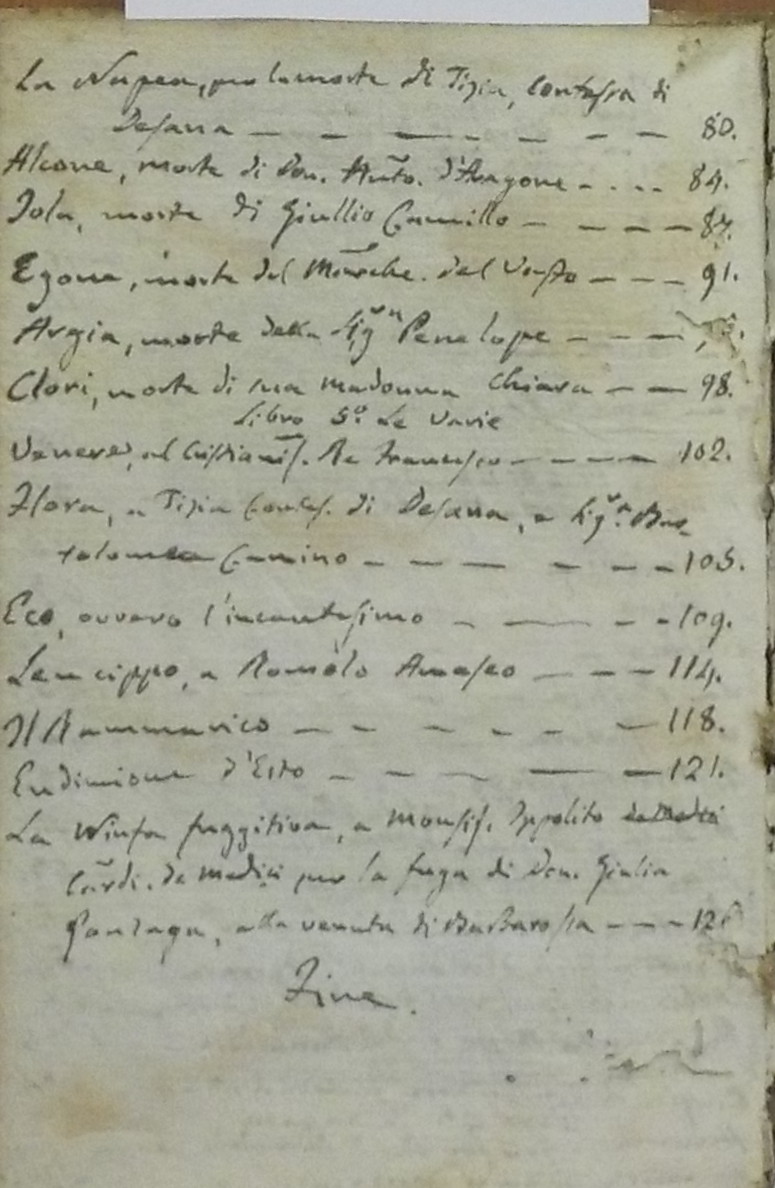 La Napea, per la morte di Tizia, Contessa di
Desana — — — — — — — 80.
Alcone, morte di Don. Anto. d'Aragone - . . . 84.
Iola, morte di Giullio Camillo — — — — 87.
Egone, morte del Marche. del Vasto — — — 91.
Argia, morte della Sigra Penelope — — —
Clori, morte di sua madonna Chiara — — 98.
Libro 5º. Le Varie
Venere, al Cristianis. Re Francesco — — — — 102.
Flora, a Tizia Contes. di Desana, e Sigra. Bar-
tolomea Camino — — — — — — 105.
Eco, ovvero l'incantesimo — — - - 109.
Leucippo, a Romolo Amaseo — — — 114.
Il Rammarico — — - - - — 118.
Endimione d'Esto — — — — — 121.
La Ninfa fuggitiva, a Monsis. Ippolito
Cardi. de Medici per la fuga di Don. Giulia
Gonzaga, alla venuta di Barbarossa — — -
Fine.